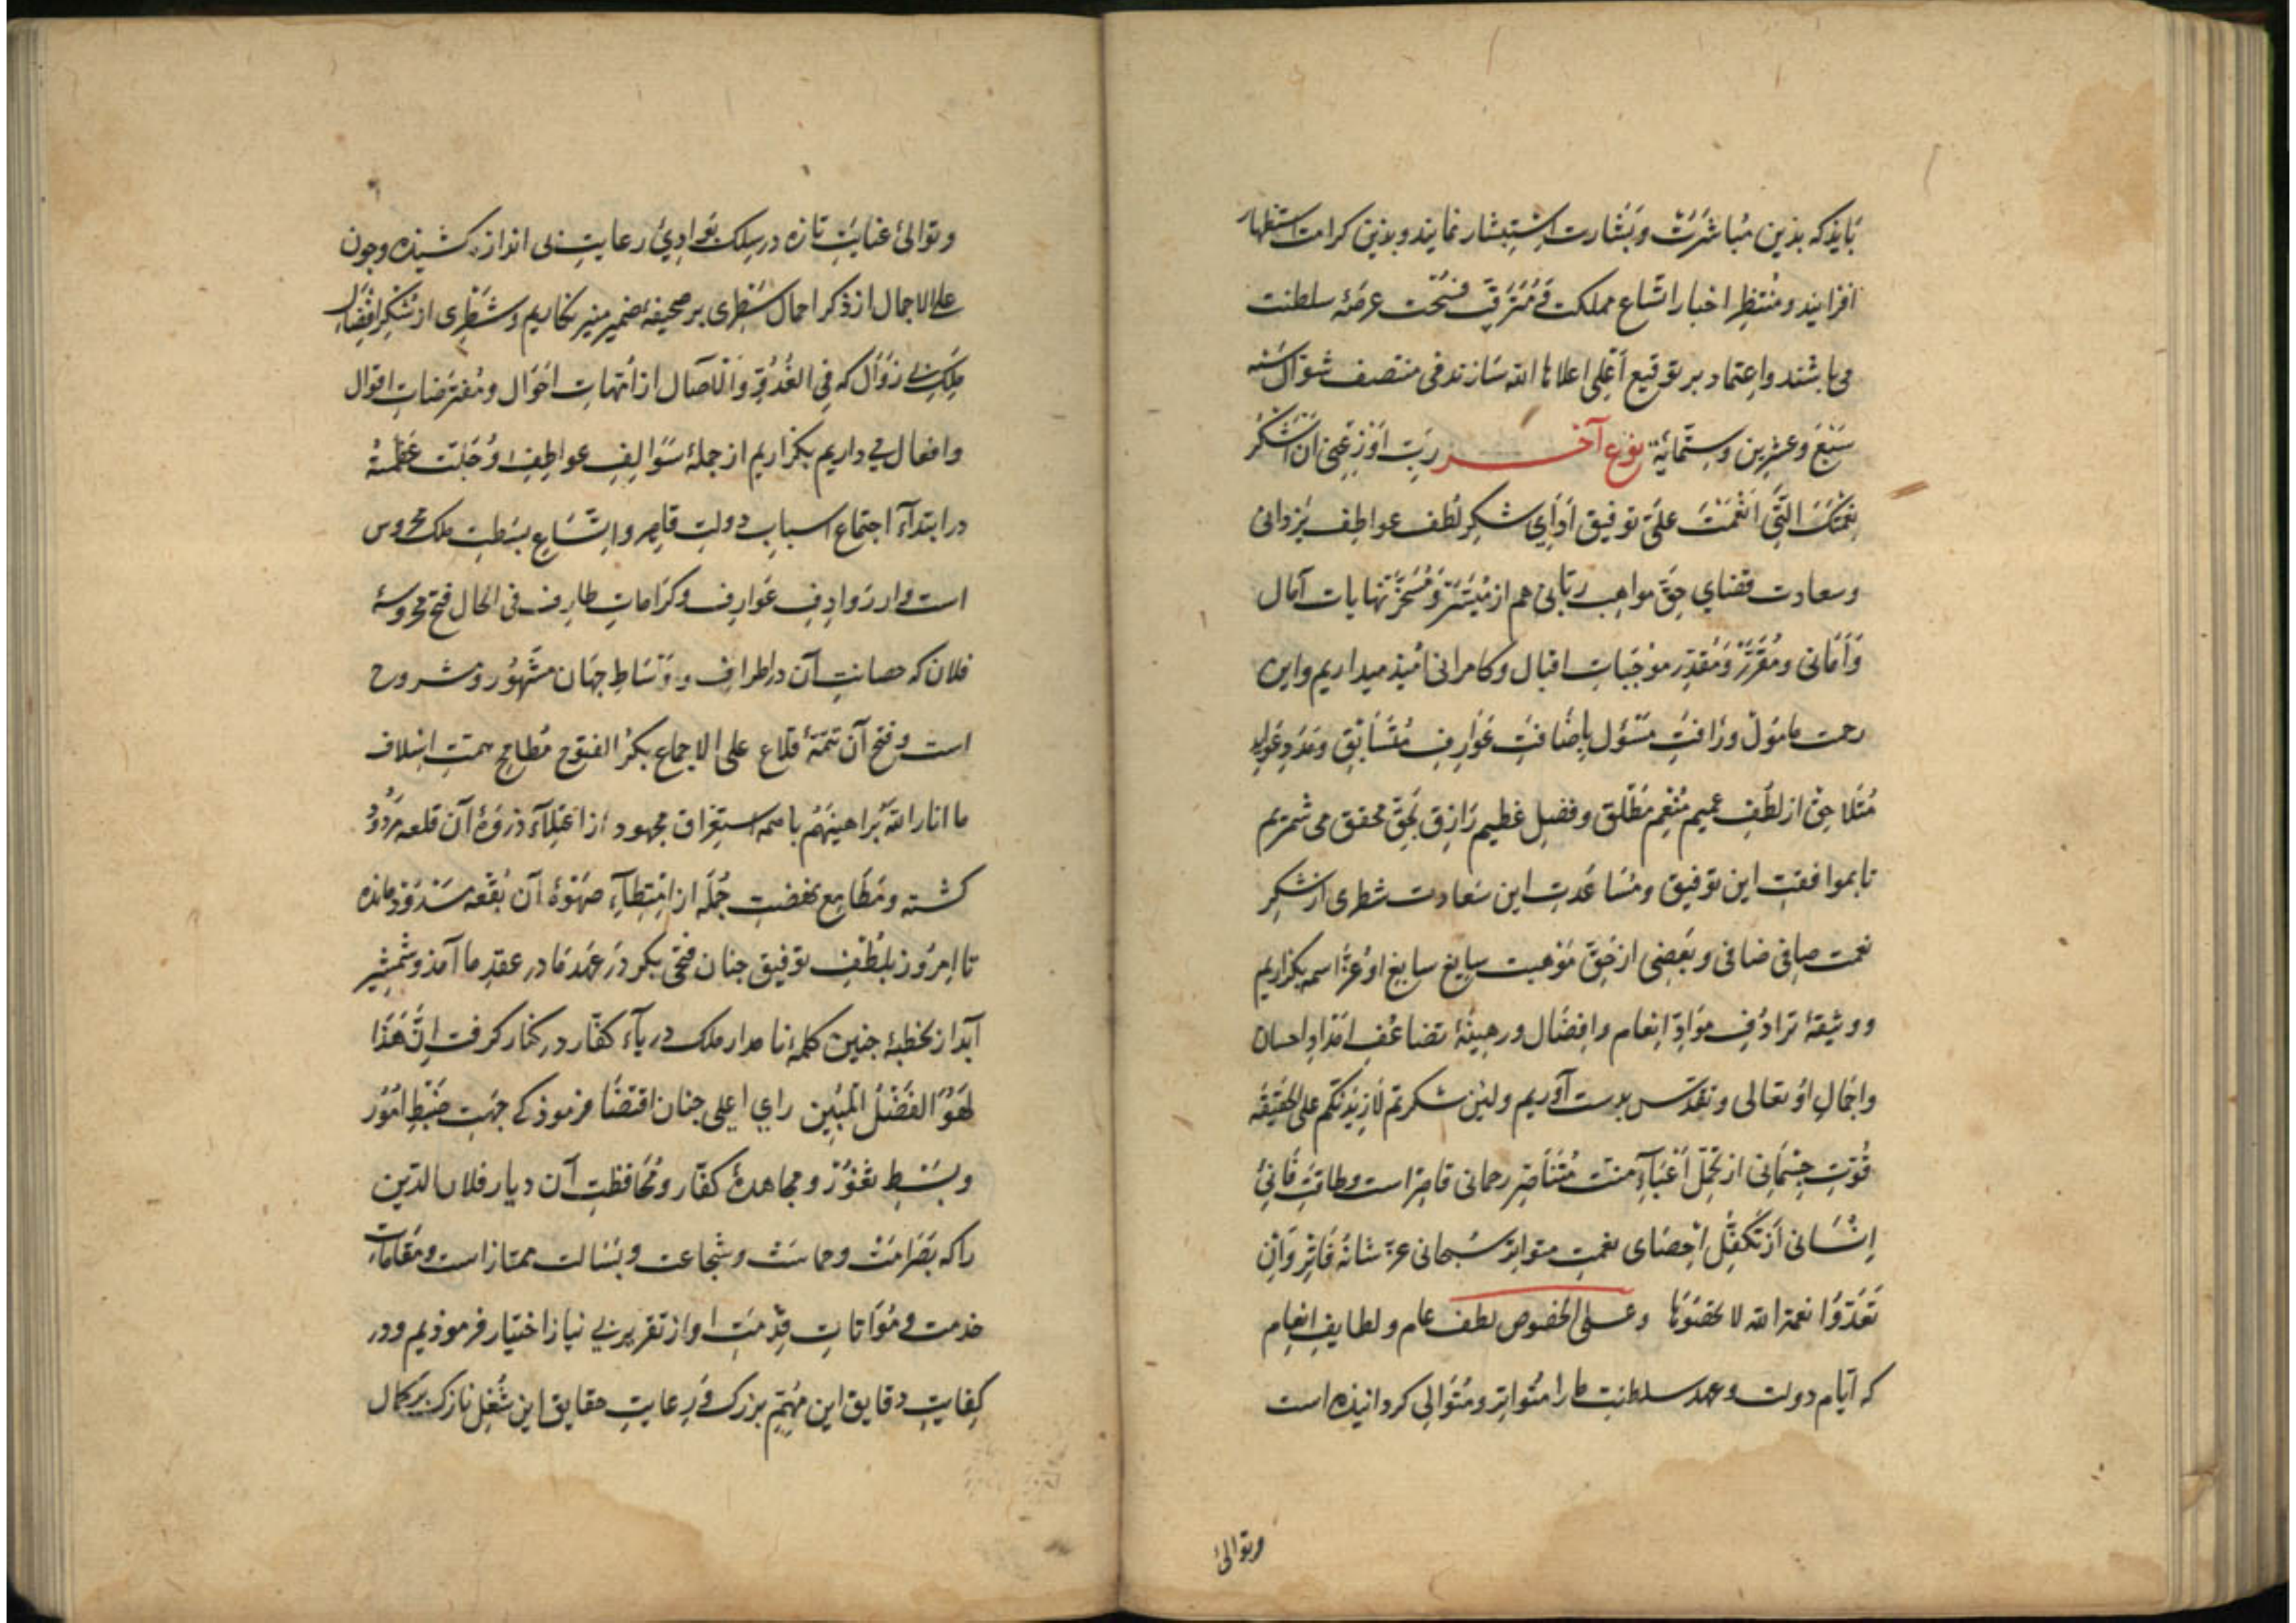 بایذ که بذین مباشرت و بشارت استبشار نمایند و بذین کرامت استظهار
افزایند و منتظر اخبار اتساع مملکت و مترقب فسحت عرصهٔ سلطنت
می باشند و اعتماد بر توقیع اعلی اعلاها الله سازند فی منتصف شوال سنه
سَبْعَ وعشرین وستمایة نوع آخر ربّ اَوْزِعْنی ان اشکر
نعمتک التی انعمت علیّ توفیق ادای شکر لطف عواطف یزدانی
و سعادت قضای حق مواهب ربانی هم از میسر و مسخر نهایات آمال
و امانی و مقرّر و مقدّر موجبات اقبال و کامرانی امیذ میداریم و این
رحمت مامول و رافت مسؤل باضافت عوارف متسابق و
متلاحق از لطف عمیم منعم مطلق و فضل عظیم رازق بحق محقق می شمریم
تا بموافقت این توفیق و مساعدت این سعادت شطری از شکر
نعمت صافی ضافی و بعضی از حق موهبت سایغ سابغ او عزّ اسمه بکزاریم
و وثیقهٔ ترادف موادّ انعام و افضال و رهینهٔ تضاعف امداد احسان
و اجمال او تعالی و تقدّس بدست آوریم ولئن شکرتم لازیدنکم علی الحقیقه
قوّت جسمانی از تحمّل اعباء منت متناصر رحمانی قاصر است و طاقت فانیٔ
انسانی از تکفّل احصای نعمت متواتر سبحانی عزّ شانه فاتر وان
تعدّوا نعمة الله لا تحصوها و علی الخصوص لطف عام و لطایف انعام
که ایام دولت و عهد سلطنت ما را متواتر و متوالی کردانیذه است
وتوالیٔ
وتوالیٔ عنایت تازه در سلک بوادیٔ رعایت بی اندازه کشیذه و چون
علی الاجمال از ذکر اجمال سطری بر صحیفهٔ ضمیر منیر نکاریم و شطری از شکر افضال
ملک بی زوال که فی الغدوّ والآصال از امّهات احوال و مفترضات اقوال
و افعال می داریم بکزاریم از جملهٔ سوالف عواطف او جلّت عظمته
در ابتداء اجتماع اسباب دولت قاهر و اتساع بسطت ملک محروس
است و از روادف عوارف و کرامات طارف فی الحال فتح محروسهٔ
فلان که حصانت آن در اطراف و اوساط جهان مشهور و مشروح
است و فتح آن تتمهٔ قلاع علی الاجماع بکر الفتوح مطامح همت اسلاف
ما انار الله براهینهم با همه استغراق مجهود از اعتلاء ذروهٔ آن قلعه مردود
کشته و مطامع نهضت جمله از امتطاء صهوهٔ آن بقعه مسدوذ مانده
تا امروز بلطف توفیق چنان فتحی بکر در عهد ما در عقد ما آمذ و شمشیر
آبدار بخطبهٔ چنین کلمهٔ نامدار ملک دریاء کفّار در کنار کرفت انّ هذا
لهو الفضل المبین رای اعلی چنان اقتضا فرموذ که جهت ضبط امور
و بسط ثغور و مجاهدهٔ کفّار و محافظت آن دیار فلان الدین
را که بصرامت و حماست و شجاعت و بسالت ممتاز است و مقامات
خدمت و مؤاتات قدمت او از تقریر بی نیاز اختیار فرموذیم و در
کفایت دقایق این مهمّ بزرک و رعایت حقایق این شغل نازک بر کمال